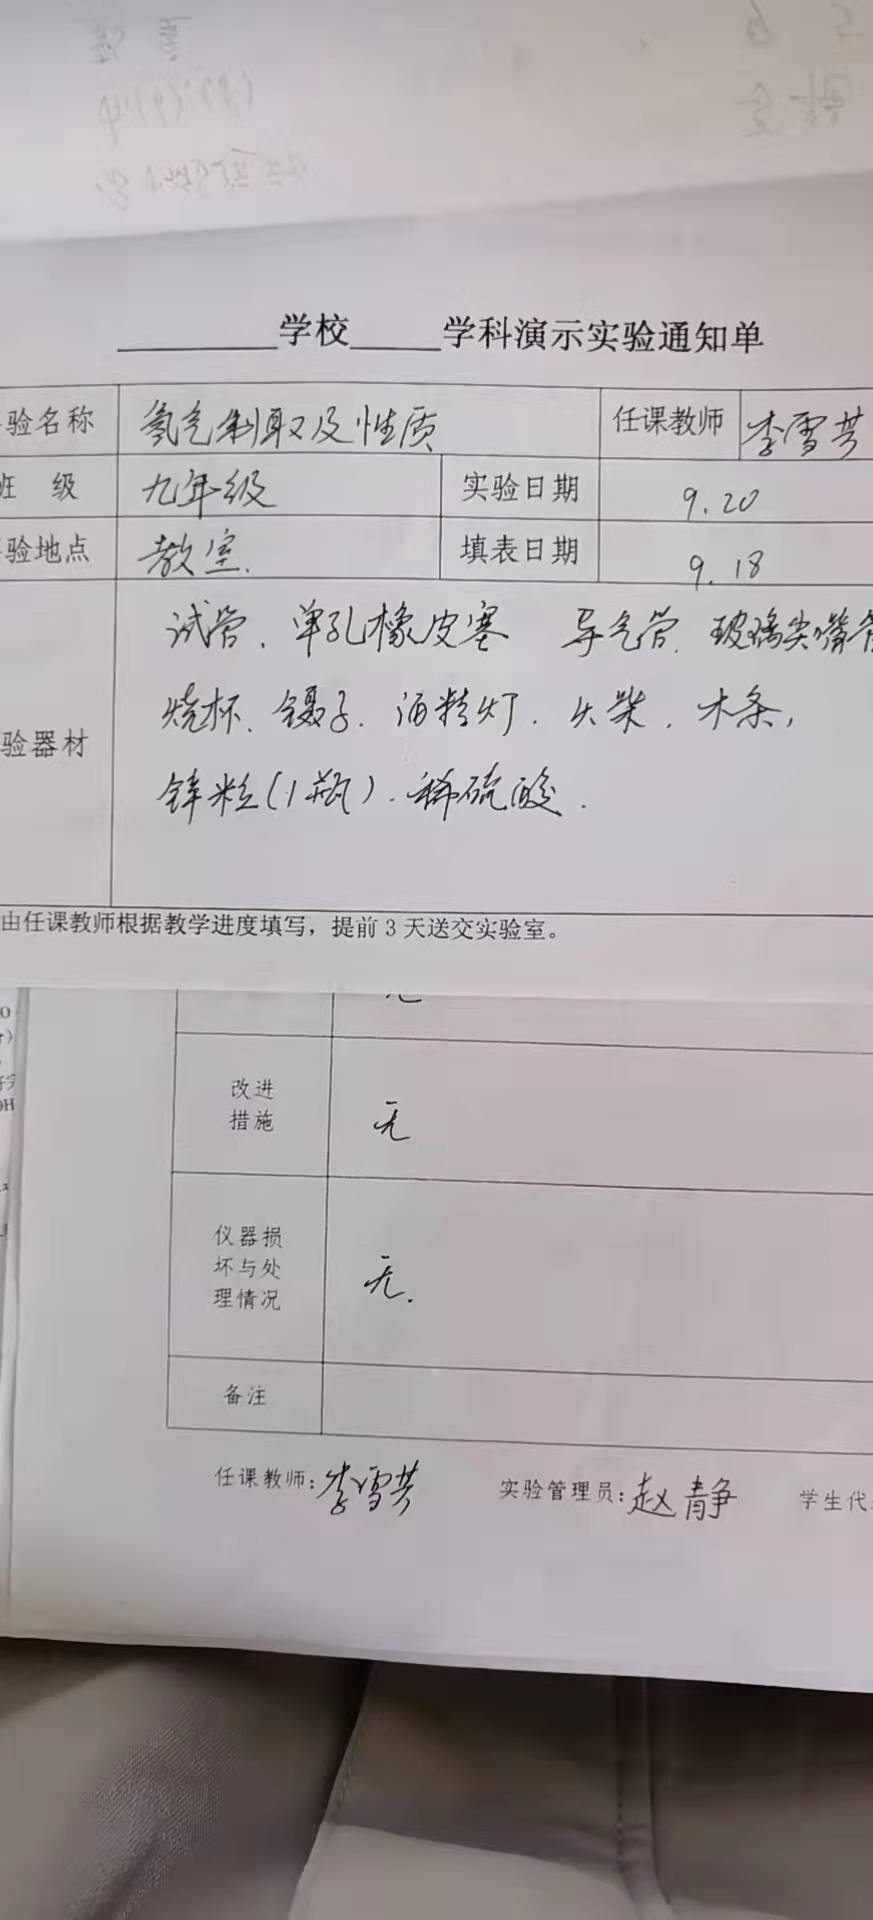 学校 学科演示实验通知单
验名称 氢气制取及性质 任课教师 李雪芳
班 级 九年级 实验日期 9.20
验地点 教室. 填表日期 9.18
试管、单孔橡皮塞 导气管、玻璃尖嘴管
烧杯、镊子、酒精灯、火柴、木条,
验器材
锌粒(1瓶)、稀硫酸.
由任课教师根据教学进度填写，提前 3 天送交实验室。
改进
措施
无
仪器损
坏与处
理情况
无.
备注
任课教师: 李雪芳 实验管理员: 赵静 学生代